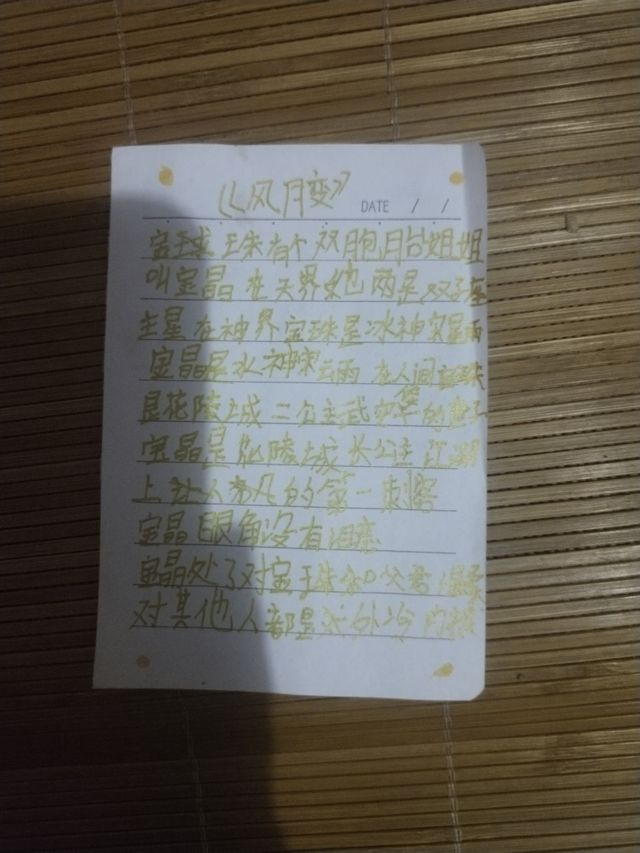 《风月变》
DATE / /
宝珠有个双胞胎姐姐
叫宝晶 在天界她两是双子座
主星 在神界宝珠是冰神
宝晶是水神 云雨 在人间宝珠
是花陵城二公主武 的
宝晶是花陵城长公主江湖
上 人 的第一刺客
宝晶眼角没有泪痣
宝晶处了对宝珠和父君温柔
对其他人都是 外冷内